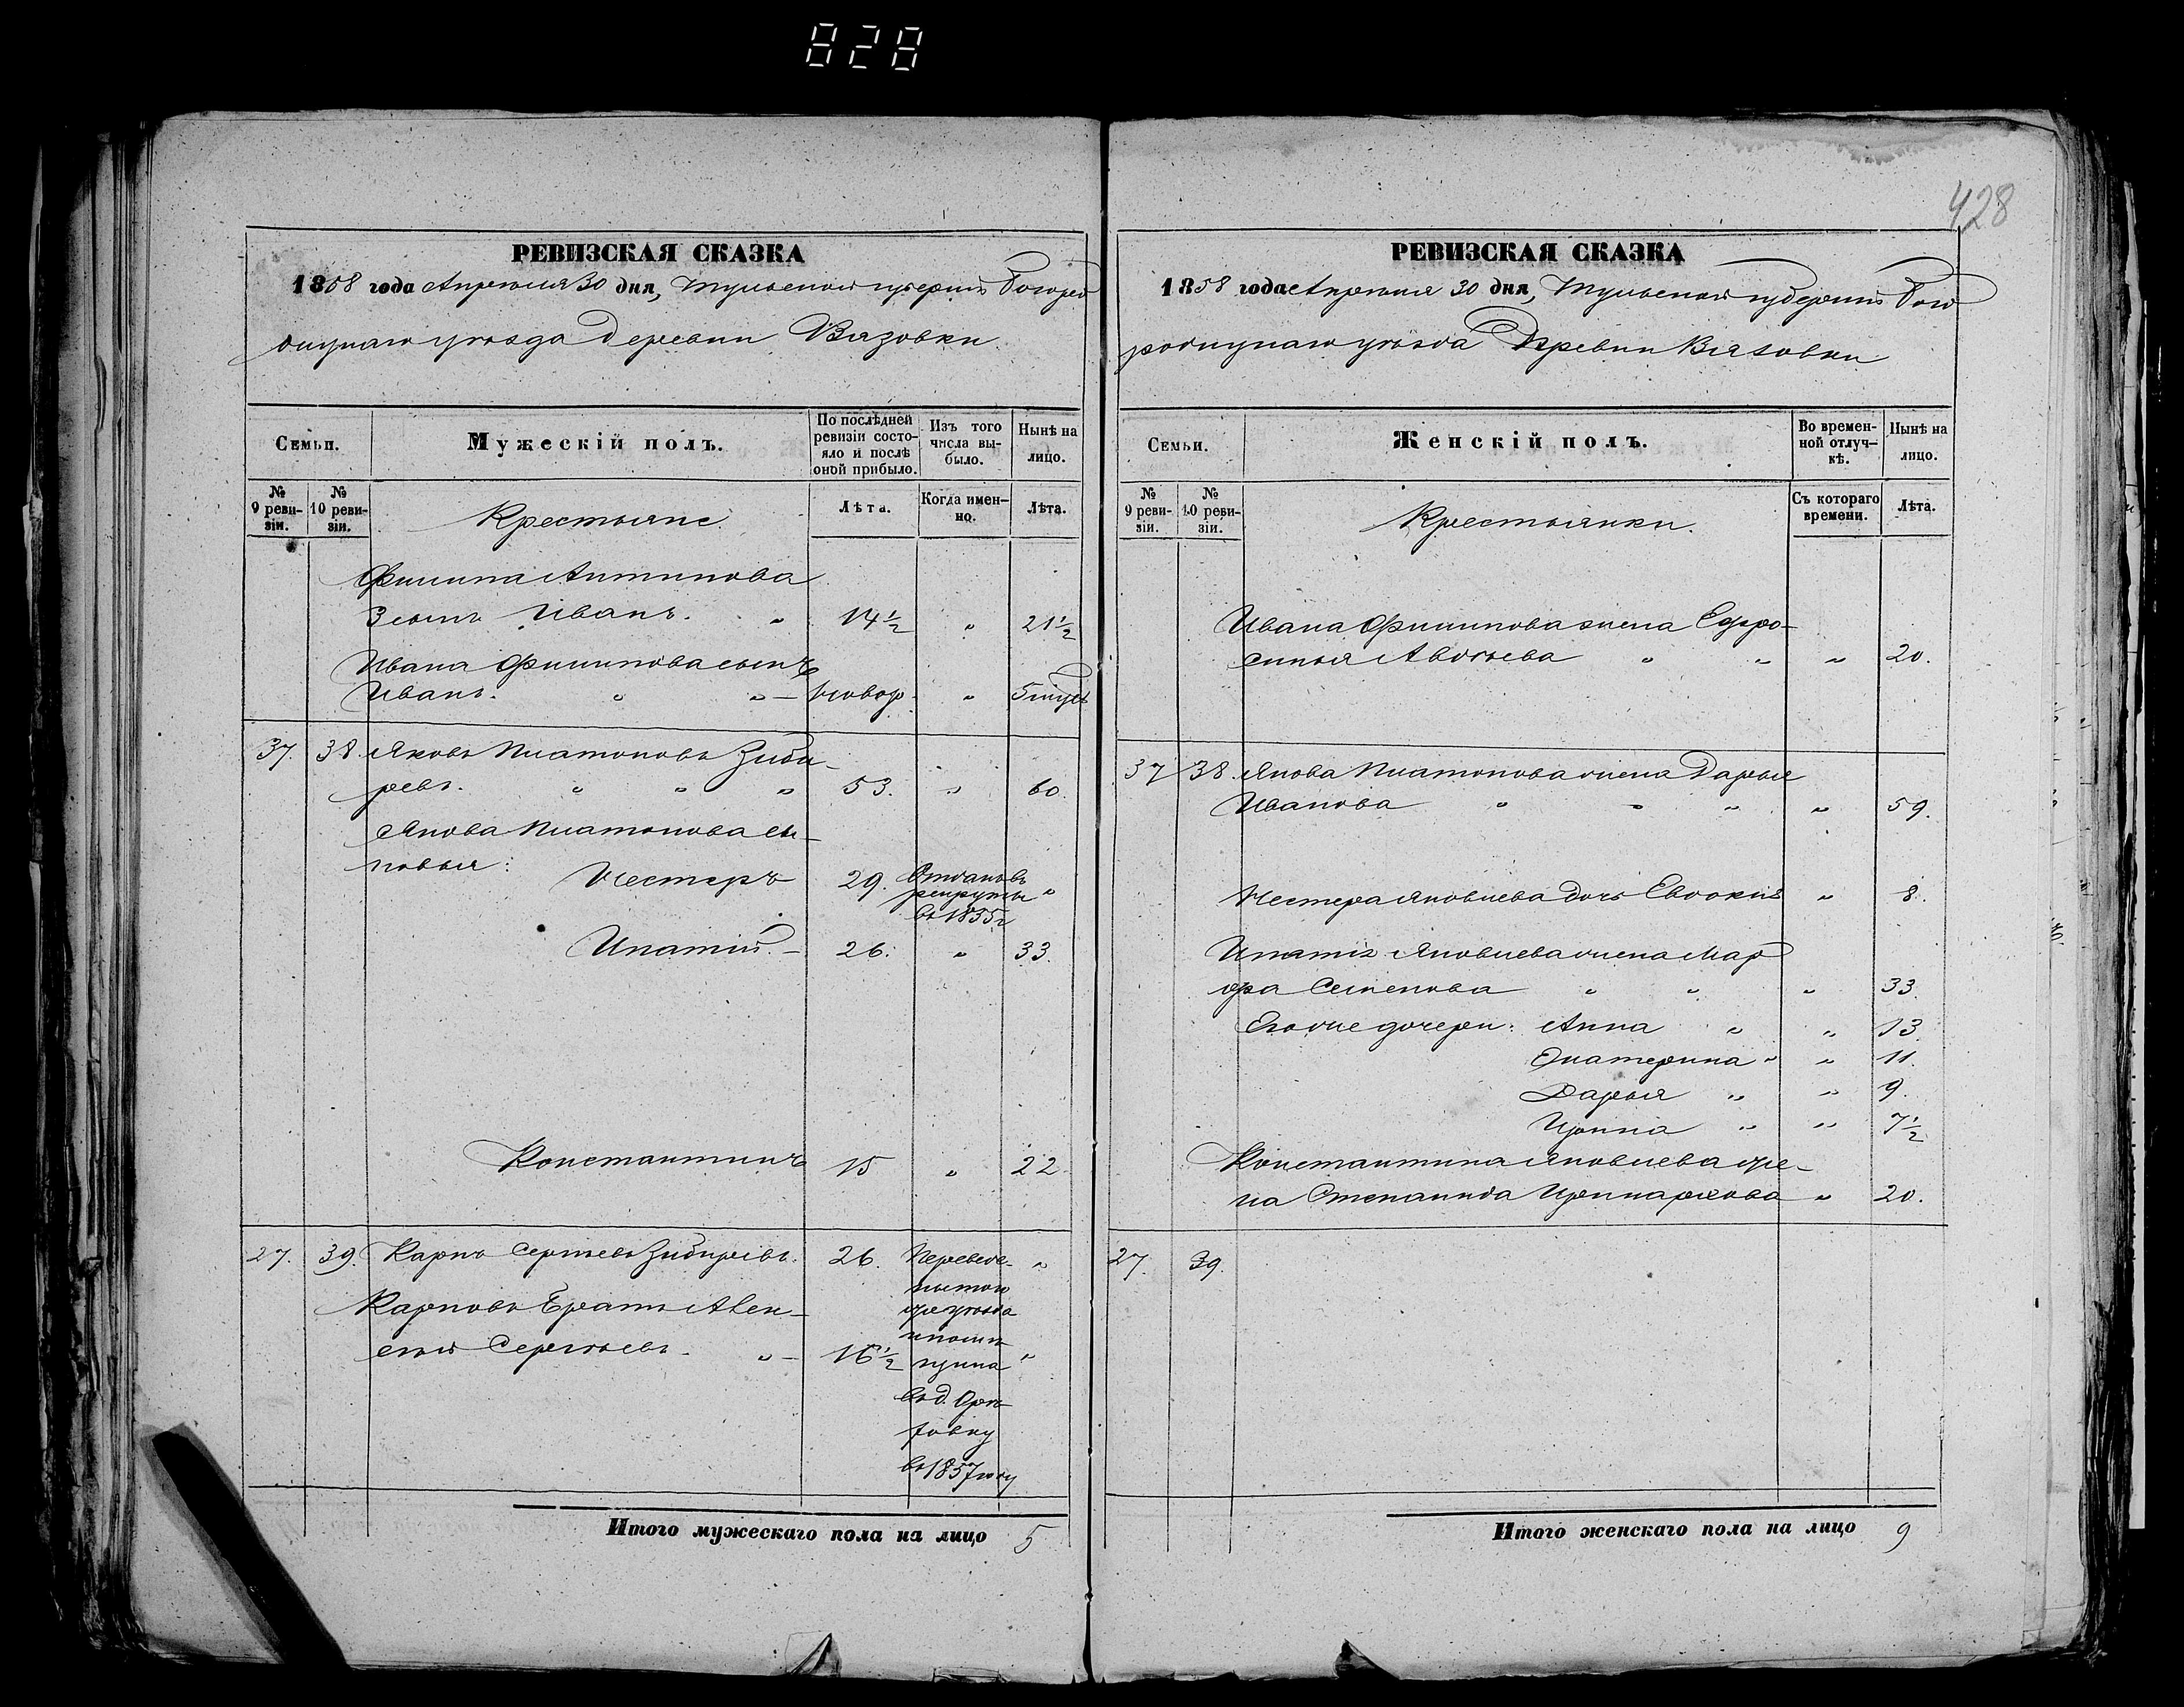 828
428
РЕВИЗСКАЯ СКАЗКА
1858 года Апреля 30 дня, Тульской губерніи Богоро
дицкаго уѣзда Деревни Вязовки
Семьи.
Мужескій полъ.
По послѣдней ревизіи состо-
яло и послѣ оной прибыло.
Изъ того числа вы-
было.
Нынѣ на лицо.
№ 9 реви-
зіи.
№ 10 реви-
зіи.
Крестьяне
Лѣта.
Когда имен-
но.
Лѣта.
Филипа Антипова
3 сынъ Иванъ. " 14½ " 21½
Ивана Филипова сынъ
Иванъ. " " – новор " 5
37. 38. Яковъ Платоновъ Зиби-
ревъ. " " " 53. " 60.
Якова Платонова сы-
новья:
Нестеръ 29. Отданъ въ
рекруты "
въ 1855 г
Ипатій. – 26. " 33.
Константинъ 15 " 22
27. 39. Карпъ Сергѣевъ Зибиревъ. 26. Переведе- "
ны того
же уѣзда
Карповъ братъ Алек-
сѣй Сергѣевъ. " – 16½ "
въ д.
въ 1857 году
Итого мужескаго пола на лицо 5
РЕВИЗСКАЯ СКАЗКА
1858 года Апреля 30 дня, Тульской губерніи Бого
родицкаго уѣзда Деревни Вязовки
Семьи.
Женскій полъ.
Во времен-
ной отлуч-
кѣ.
Нынѣ на лицо.
№ 9 реви-
зіи.
№ 10 реви-
зіи.
Крестьянки.
Съ котораго времени.
Лѣта.
Ивана Филипова жена Ефро-
синья Авдѣева " " " 20.
37 38. Якова Платонова жена Дарья
Иванова " " " " 59.
Нестера Яковлева дочь Евдокия " 8.
Ипатія Яковлева жена Мар
фра Семенова " " " 33.
Его же дочери: Анна " " 13
Екатерина " " 11.
Дарья " " 9.
Ирина " " 7½
Константина Яковлева же-
на Степанида " 20.
27. 39.
Итого женскаго пола на лицо 9